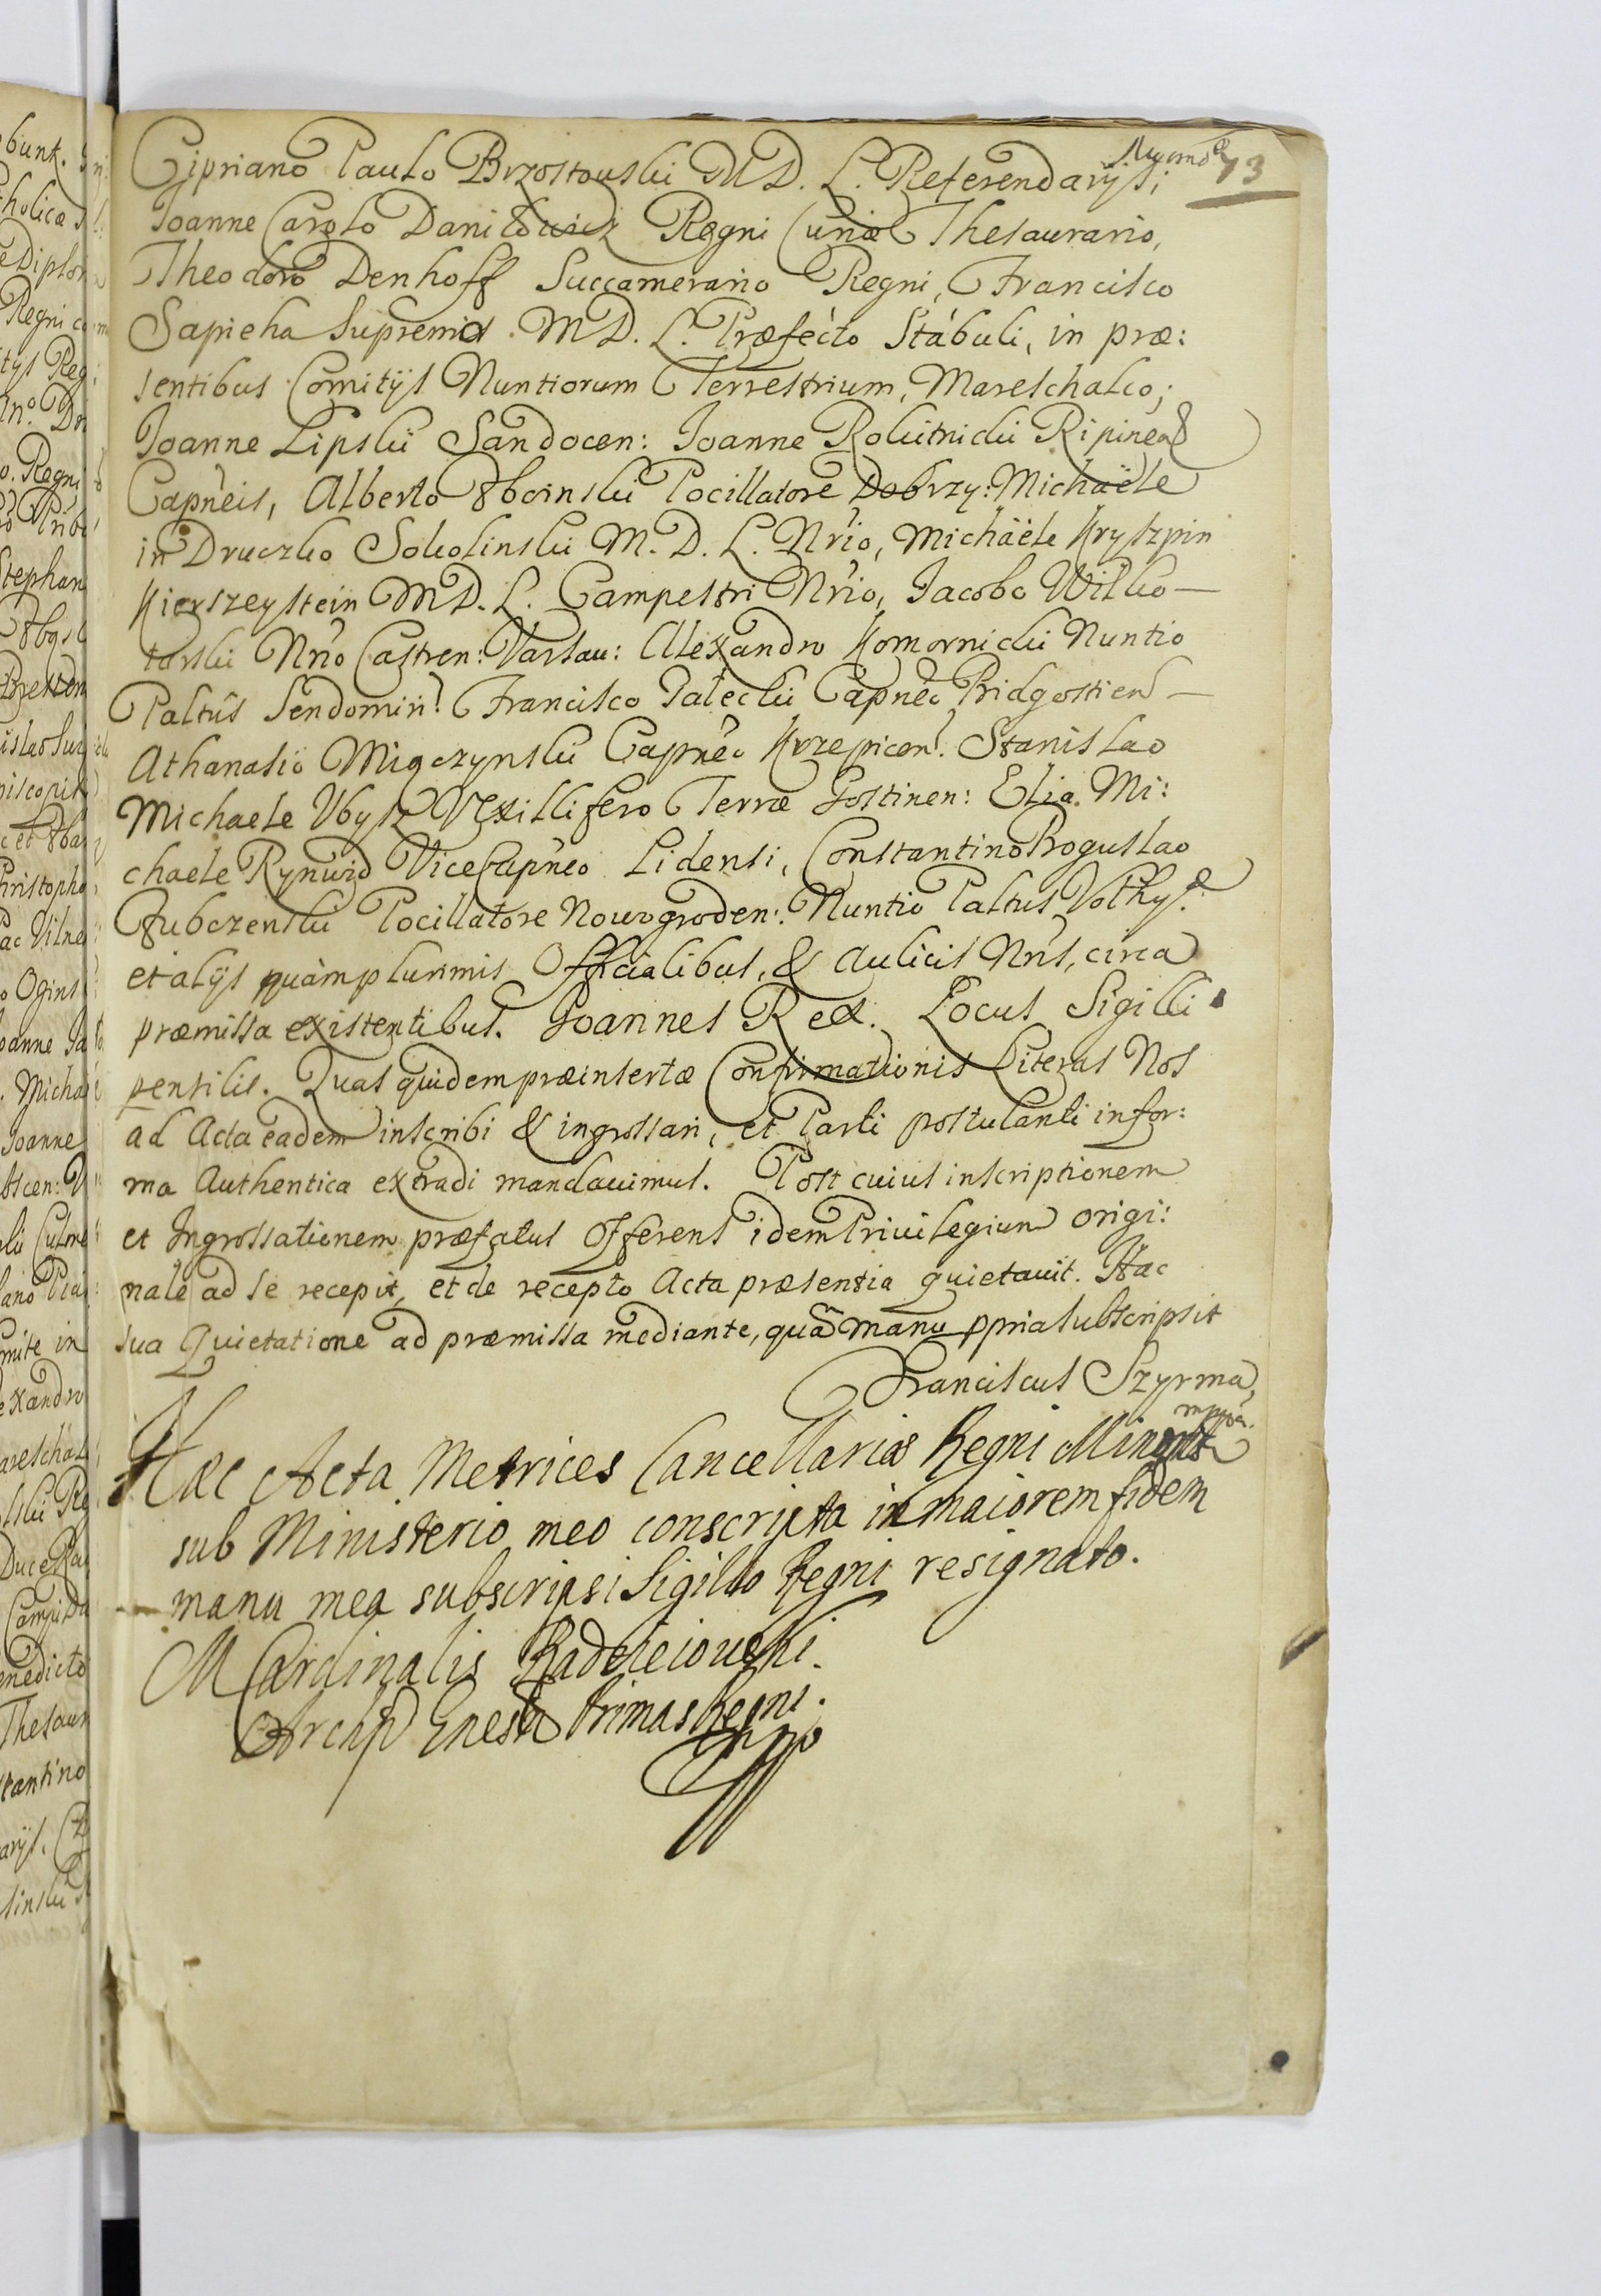 73
Cipriano Paulo Brzostouski M D. L. Referendarijs;
Joanne Carolo Daniłowicz Regni Curiæ Thesaurario,
Theodoro Denhoff Succamerario Regni, Francisco
Sapieha Supremo M D. L. Præfecto Stabuli, in præ:
sentibus Comitijs Nuntiorum Terrestrium, Mareschalco;
Joanne Lipski Sandocen: Joanne Rokitnicki Ripinen
Capneis, Alberto Pocillatore Dobrzy: Michaële
in Druczko Sokolinski M. D. L. Nrio, Michäele Kryszpin
Kierszeystein M D. L. Campestri Nrio, Jacobo Wilko—
tarski Nrio Castren: Varsau: Alexandro Komornicki Nuntio
Paltus Sendomin: Francisco Gałecki Capneo Bidgostien—
Athanasio Miączynski Capneo Krzepicen. Stanislao
Michaele Ubysz Vexillifero Terræ Gostinen: Elia. Mi:
chaele Rynwid ViceCapneo Lidensi, Constantino Boguslao
Pocillatore Nowogroden: Nuntio Paltus Volhy:
et alijs quàmplurimis Officialibus, & Aulicis Nris, circa
præmissa existentibus. Joannes Rex. Locus Sigilli
pensilis. Quas quidem præinsertæ Confirmationis Literas Nos
ad Acta eadem inscribi & ingrossari, et Parti postulanti in for:
ma Authentica extradi mandauimus. Post cuius inscriptionem
et Ingrossationem præfatus Offerens idem Priuilegium origi:
nale ad se recepit, et de recepto Acta præsentia quietauit. Hac
sua Quietatione ad præmissa mediante, quã manu ppria subscripsit
Franciscus Szyrma,
mppa.
Hæc Acta Metrices Cancellariæ Regni Minoris
sub Ministerio meo conscripta in maiorem fidem
manu mea subscripsi Sigillo Regni resignato.
M Cardinalis Radzieiouski.
Archip Gnesn Primas Regni.
mpp